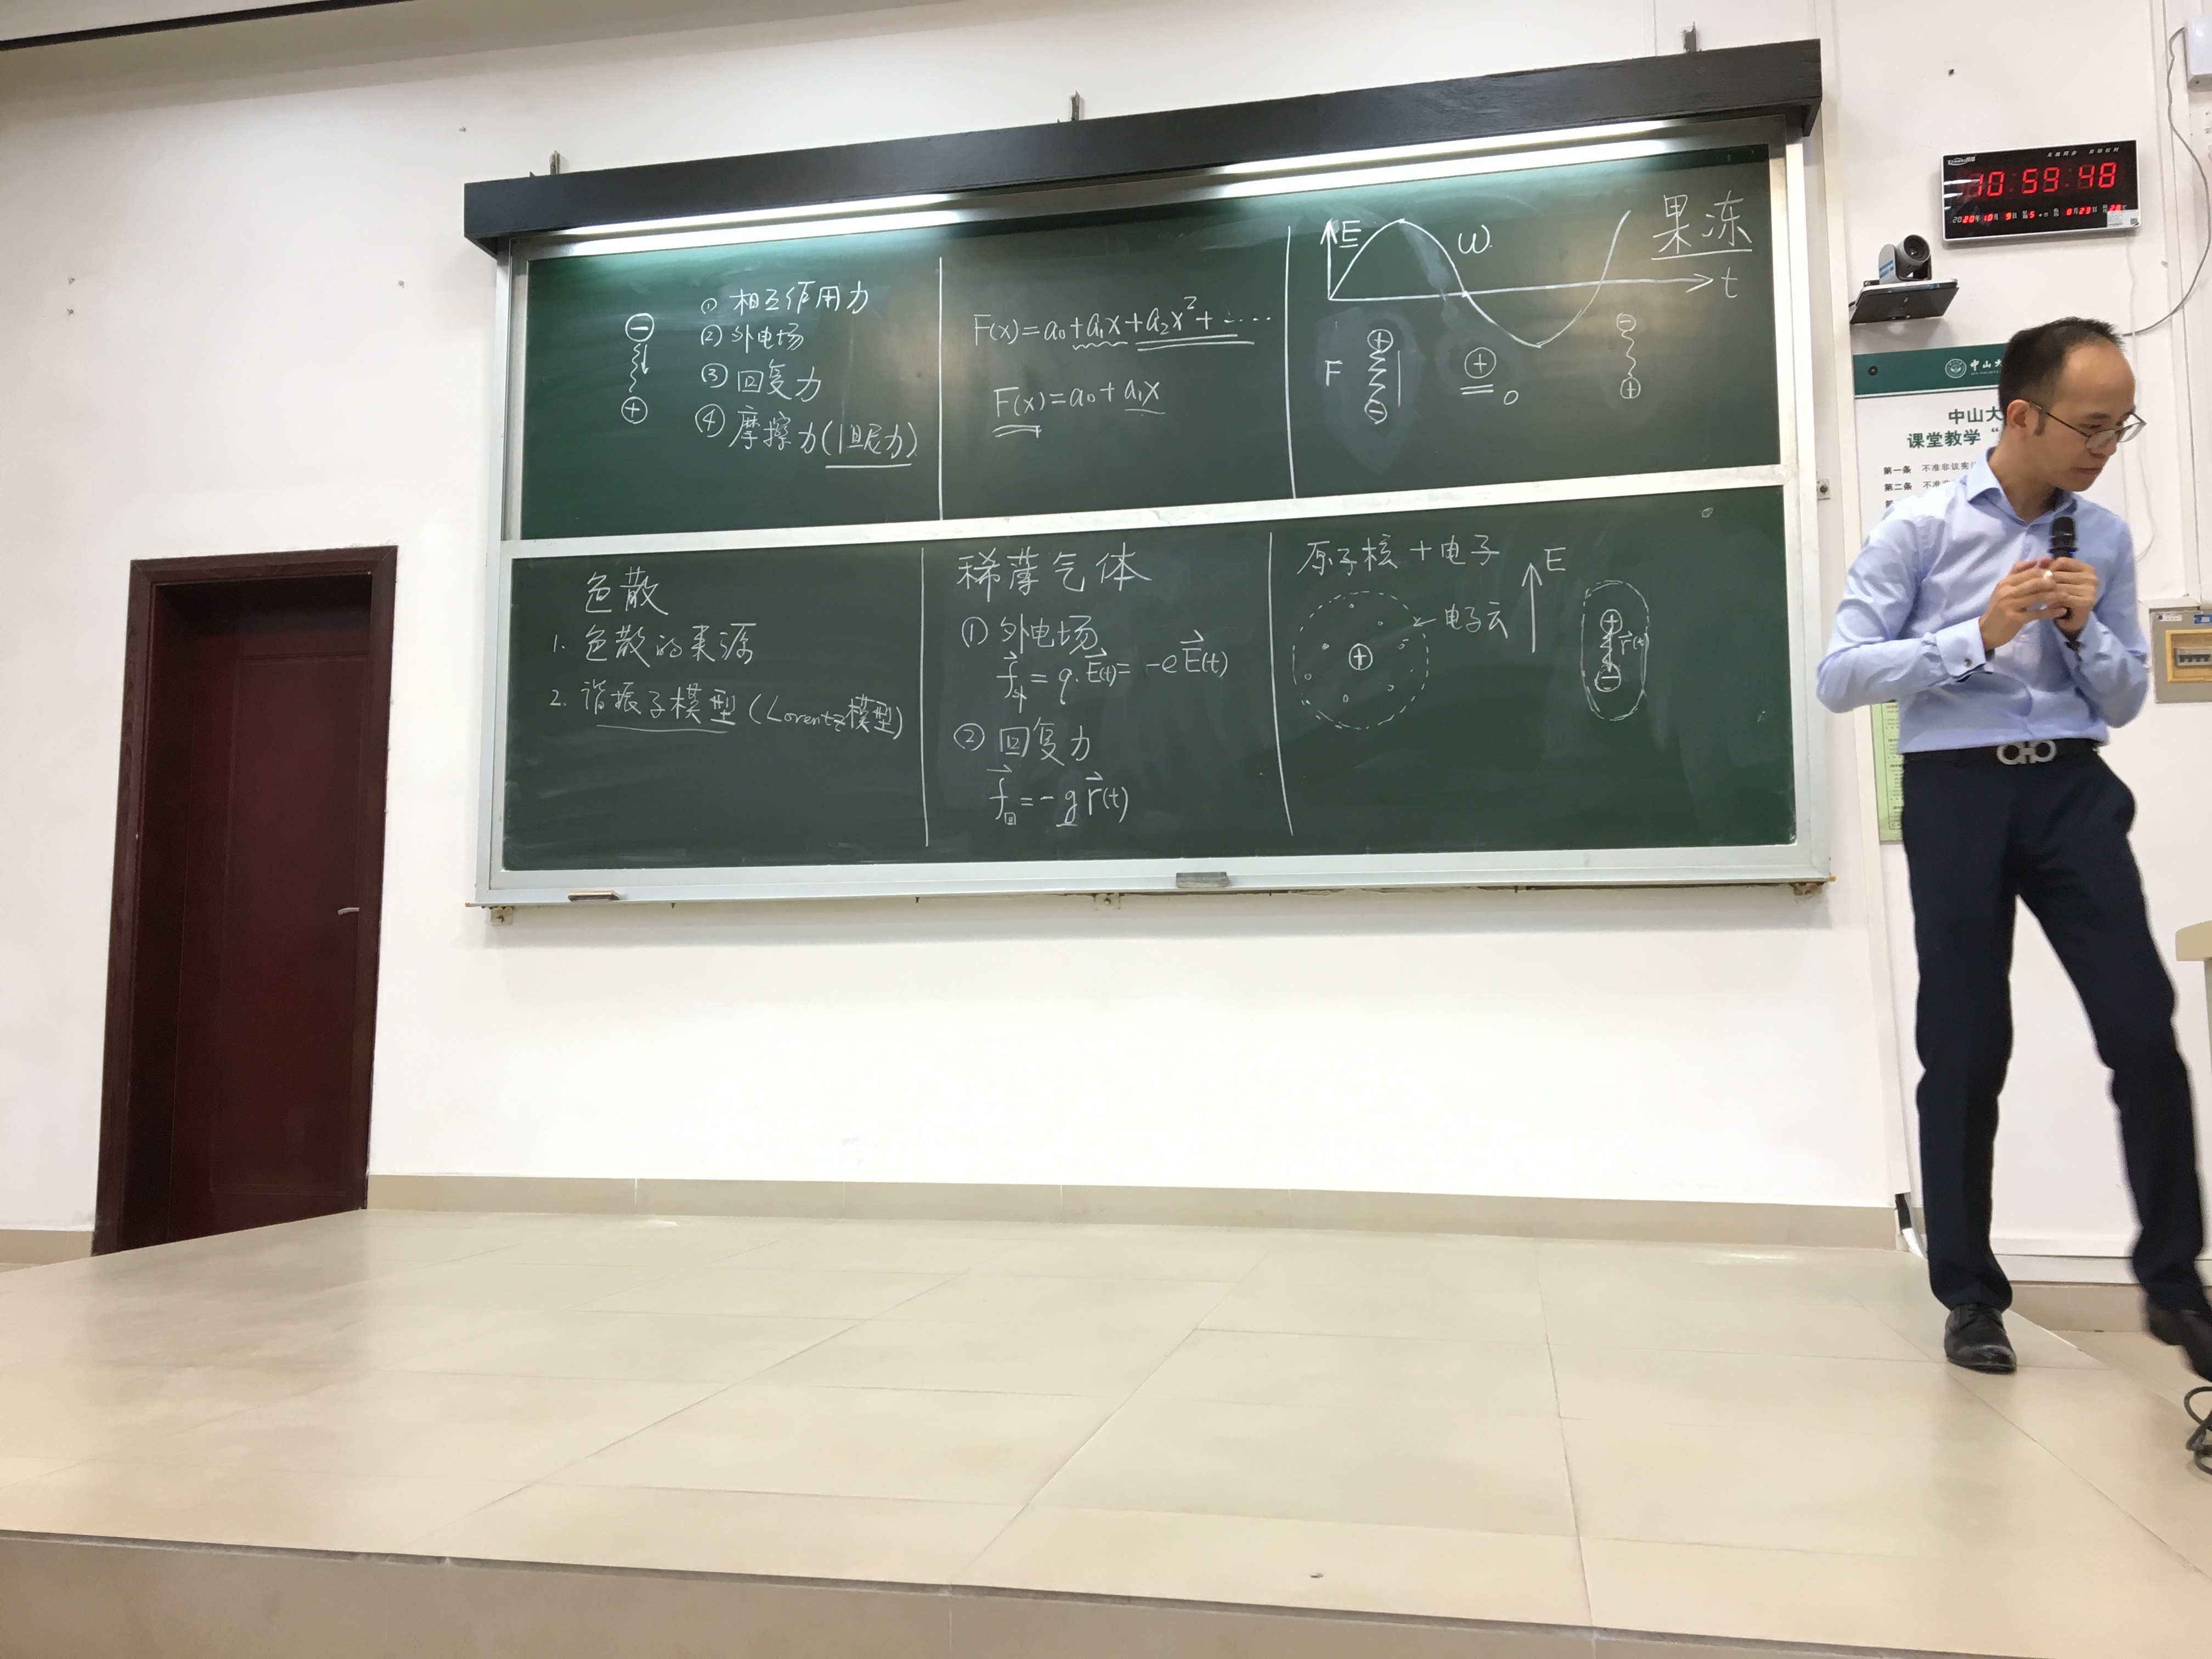 ⊖
⊕
① 相互作用力
② 外电场
③ 回复力
④ 摩擦力(阻尼力)
F(x)=a₀+a₁x+a₂x²+……
F(x)=a₀+a₁x
E
ω
果冻
t
F
⊕
⊖
⊕
0
⊖
⊕
色散
1. 色散的来源
2. 谐振子模型(Lorentz模型)
稀薄气体
① 外电场
f⃗外=q·E⃗(t)=-eE⃗(t)
② 回复力
f⃗回=-g r⃗(t)
原子核+电子
E
⊕
电子云
⊕
r⃗(t)
⊖
10:59:48
2020年10月9日
中山大
中山大
课堂教学“
第一条 不准非议宪
第二条 不准